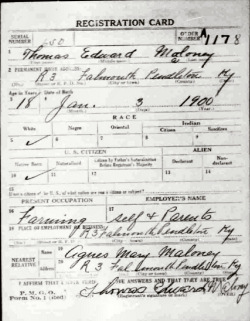 REGISTRATION CARD
SERIAL NUMBER 650 ORDER NUMBER A1178
1 Thomas Edward Maloney
2 PERMANENT HOME ADDRESS:
R3 Falmouth Pendleton Ky
Age in Years Date of Birth
18 Jan. 3 1900
RACE
White Negro Oriental Indian
Citizen Noncitizen
U. S. CITIZEN ALIEN
Native Born Naturalized Citizen by Father's Naturalization Before Registrant's Majority Declarant Non-declarant
If not a citizen of the U. S., of what nation are you a citizen or subject?
PRESENT OCCUPATION EMPLOYER'S NAME
Farming Self & Parents
PLACE OF EMPLOYMENT OR BUSINESS:
R3 Falmouth Pendleton Ky
NEAREST RELATIVE
Name Agnes Mary Maloney
Address R 3 Falmouth Pendleton Ky
I AFFIRM THAT I HAVE VERIFIED ABOVE ANSWERS AND THAT THEY ARE TRUE
P. M. G. O.
Form No. 1 Thomas Edward Maloney